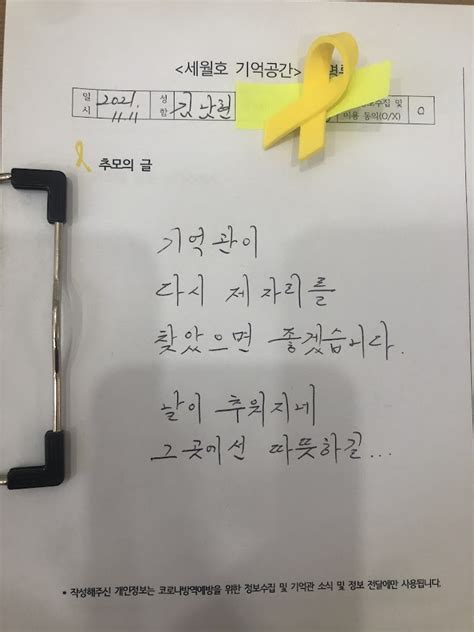 <세월호 기억공간>
일시 2021. 11.11 성함 수집 및 이용 동의(O/X) O
추모의 글
기억관이
다시 제 자리를
찾았으면 좋겠습니다.
날이 추워지네
그 곳에선 따뜻하길...
* 작성해주신 개인정보는 코로나방역예방을 위한 정보수집 및 기억관 소식 및 정보 전달에만 사용됩니다.